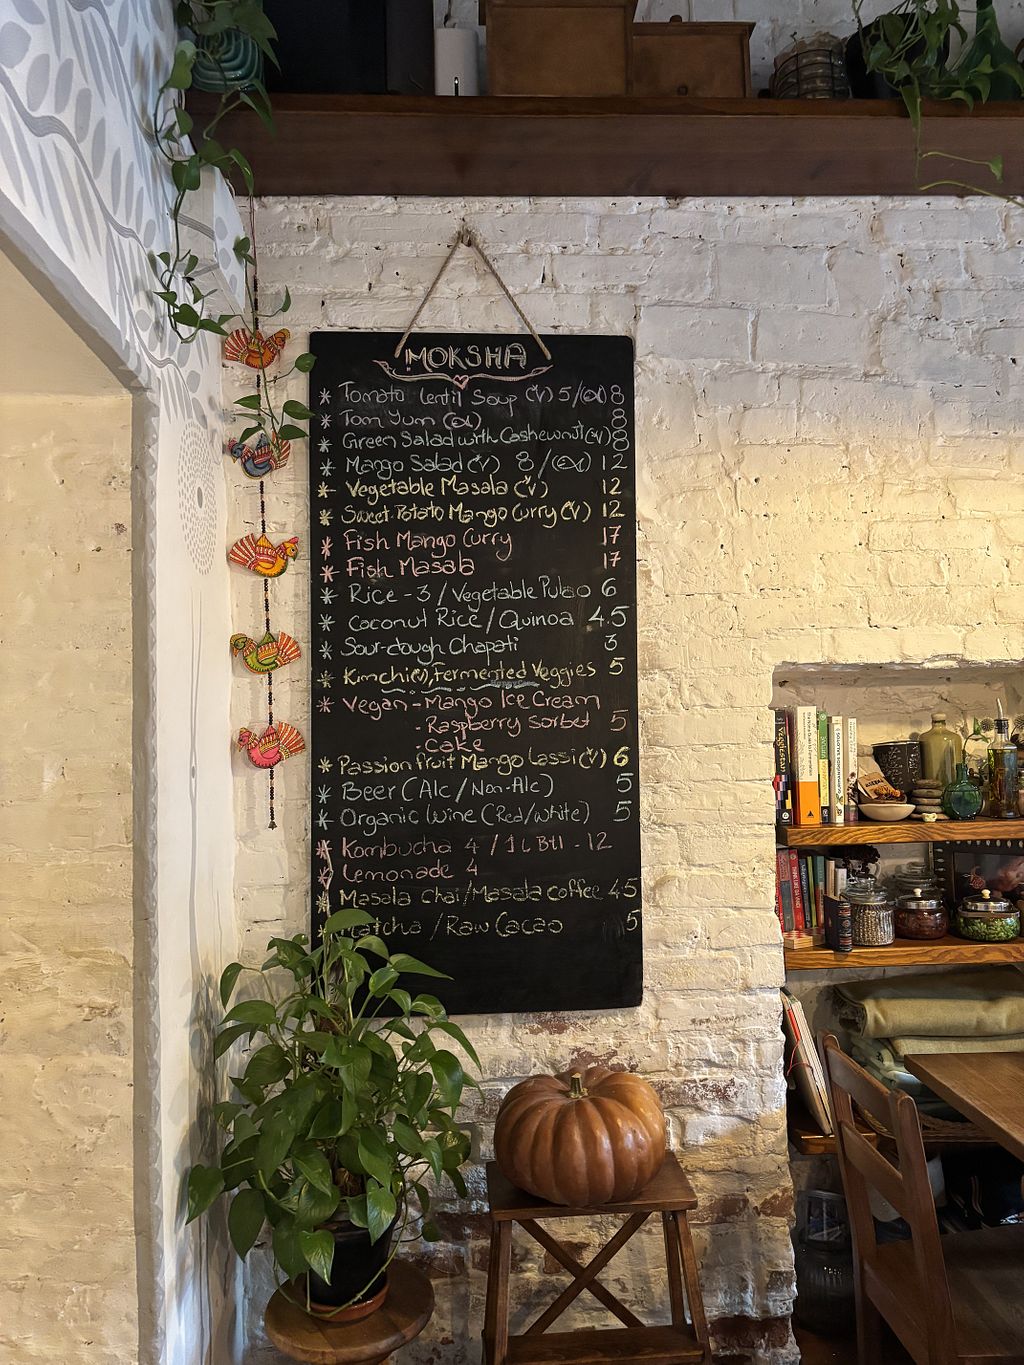 MOKSHA
* Tomato Lentil Soup (v) 5/ 8
* Tom Yum 8
* Green Salad with Cashewnut (v) 8
* Mango Salad (v) 8 / 12
* Vegetable Masala (v) 12
* Sweet Potato Mango Curry (v) 12
* Fish Mango Curry 17
* Fish Masala 17
* Rice - 3 / Vegetable Pulao 6
* Coconut Rice / Quinoa 4.5
* Sour-dough Chapati 3
* Kimchi(v), Fermented Veggies 5
* Vegan - Mango Ice Cream
- Raspberry Sorbet 5
- Cake
* Passion fruit Mango Lassi (v) 6
* Beer (Alc / Non-Alc) 5
* Organic Wine (Red/White) 5
* Kombucha 4 / 1L Btl - 12
* Lemonade 4
* Masala Chai/Masala Coffee 4.5
* Matcha / Raw Cacao 5